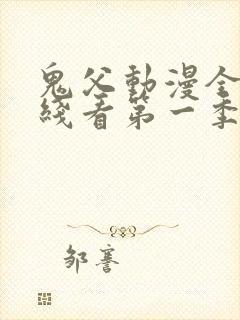 鬼父動漫全
綫看第一季
邹謇